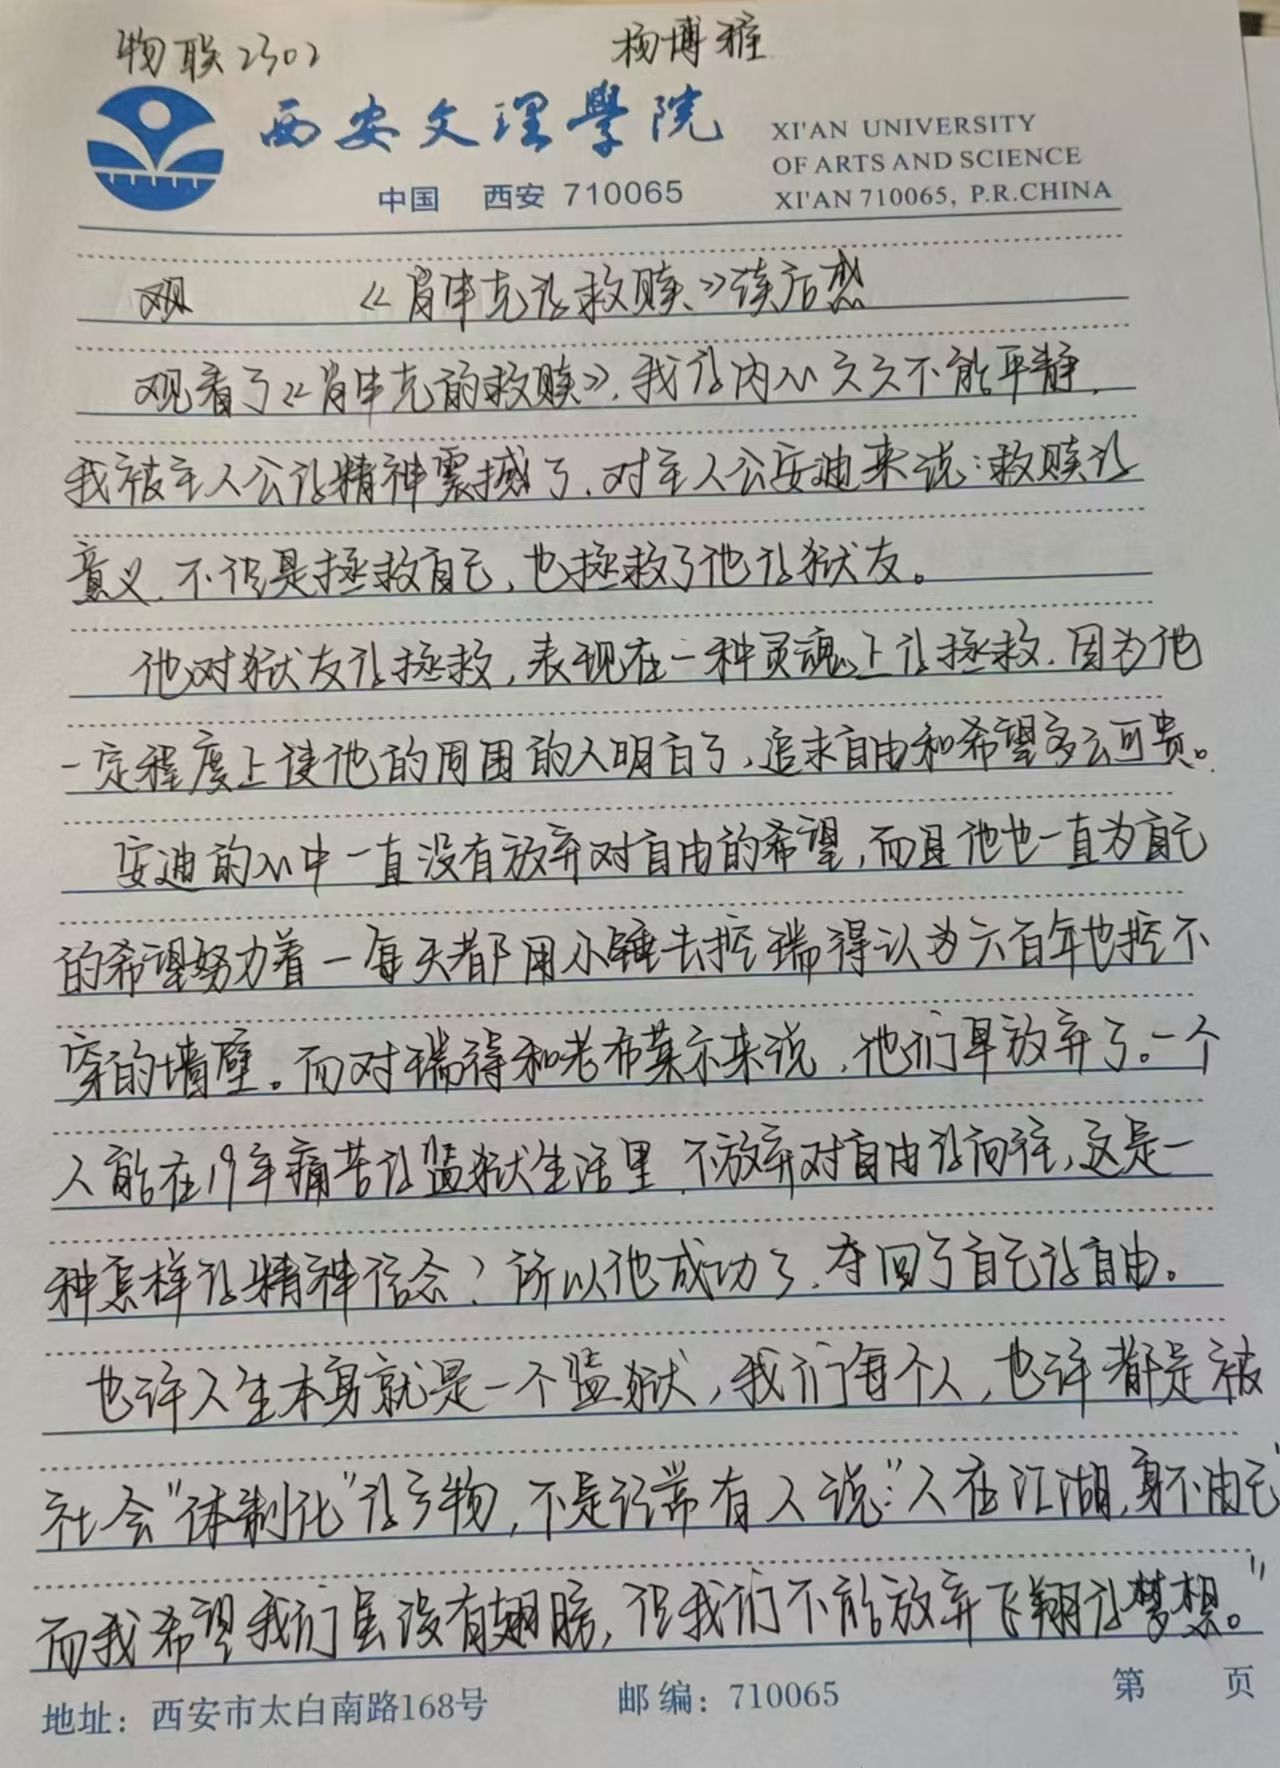 物联2302 杨博雅
西安文理學院
XI'AN UNIVERSITY
OF ARTS AND SCIENCE
中国 西安 710065
XI'AN 710065, P.R.CHINA
观 《肖申克的救赎》读后感
观看了《肖申克的救赎》,我的内心久久不能平静,
我被主人公的精神震撼了,对主人公安迪来说:救赎的
意义,不但是拯救自己,也拯救了他的狱友。
他对狱友的拯救,表现在一种灵魂上的拯救,因为他
一定程度上使他的周围的人明白了,追求自由和希望多么可贵。
安迪的心中一直没有放弃对自由的希望,而且他也一直为自己
的希望努力着一每天都用小锤去挖瑞得认为六百年也挖不
穿的墙壁。而对瑞得和老布莱尔来说,他们早放弃了。一个
人能在19年痛苦的监狱生活里,不放弃对自由的向往,这是一
种怎样的精神信念?所以他成功了,夺回了自己的自由。
也许人生本身就是一个监狱,我们每个人,也许都是被
社会“体制化”的产物,不是经常有人说:“人在江湖,身不由己”
而我希望我们虽没有翅膀,但我们不能放弃飞翔的梦想。”
地址:西安市太白南路168号 邮编:710065 第 页